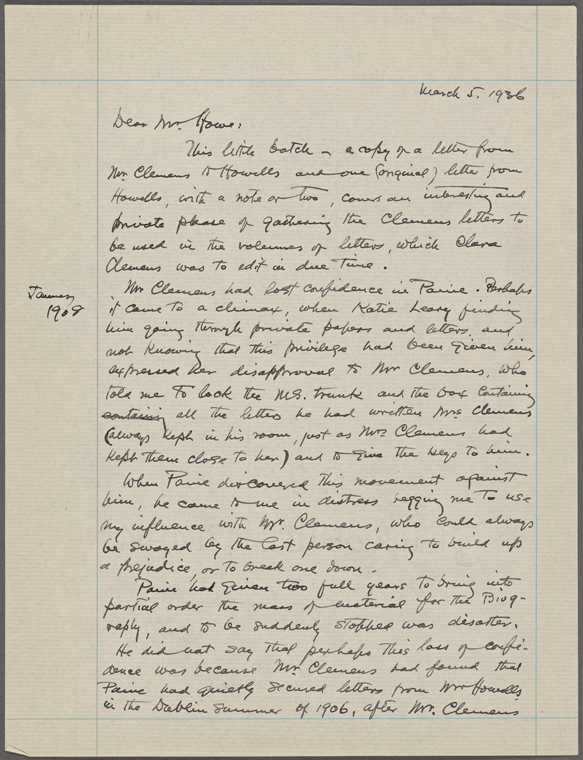 March 5. 1936
Dear Mr. Howe:
This little batch - a copy of a letter from
Mr. Clemens to Howells and one (original) letter from
Howells, with a note or two, covers an interesting and
private phase of gathering the Clemens letters to
be used in the volumes of letters, which Clara
Clemens was to edit in due time.
Mr Clemens had lost confidence in Paine. Perhaps
January
1908
it came to a climax, when Katie Leary finding
him going through private papers and letters, and
not knowing that this privilege had been given him,
expressed her disapproval to Mr Clemens, who
told me to lock the MS. trunk and the box containing
containing all the letters he had written Mrs. Clemens
(always kept in his room, just as Mrs Clemens had
kept them close to her) and to give the keys to him.
When Paine discovered this movement against
him, he came to me in distress begging me to use
my influence with Mr. Clemens, who could always
be swayed by the last person caring to build up
a prejudice, or to break one down.
Paine had given two full years to bring into
partial order the mass of material for the Biog-
raphy, and to be suddenly stopped was disaster.
He did not say that perhaps this loss of confi-
dence was because Mr. Clemens had found that
Paine had quietly secured letters from Mr Howells
in the Dublin summer of 1906, after Mr. Clemens